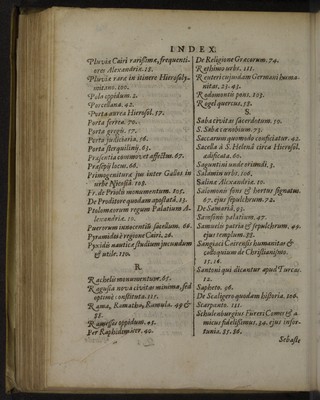 INDEX.
Pluviæ Cairi rarißimæ, frequenti-
ores Alexandriæ. 15.
Pluviæ raræ in itinere Hierosoly-
mitano. 100.
Pola oppidum. 2.
Porcellana. 42.
Porta aurea Hierosol. 57.
Porta ferrea. 70.
Porta gregis. 57.
Porta judiciaria. 56.
Porta sterquilinij. 63.
Præsentia commovet affectum. 67.
Præsepij locus. 66.
Primogenitura jus inter Gallos in
urbe Nicosia. 103.
Fr. de Priolis monumentum. 105.
De Proditore quodam apostatâ. 23.
Ptolomæorum regum Palatium A-
lexandriæ. 10.
Puerorum innocentũ sacellum. 66.
Pyramides è regione Cairi. 26.
Pyxidis nauticæ studium jucundum
& utile. 110.
R.
Rachelis monumentum. 65.
Ragusia nova civitas minima, sed
optimè constituta. 111.
Rama, Ramatha, Ramula. 49 &
51.
Ramesse oppidum. 45.
Per Raphidim iter. 40.
De Religione Græcorum. 74.
Rethimo urbs. 111.
Renteri cujusdam Germani huma-
nitas. 23. 43.
Rodomontis pons. 103.
Rogel quercus. 58.
S.
Saba civitas sacerdotum. 50.
S. Saba cœnobium. 73.
Succarum quomodo conficiatur. 42.
Sacella à S. Helenâ circa Hierosol.
ædificata. 60.
Saguntini unde oriundi. 3.
Salamin urbs. 106.
Salinæ Alexandriæ. 10.
Salomonis fons & hortus signatus.
67. ejus sepulchrum. 72.
De Samariâ. 93.
Samsonis palatium. 47.
Samuelis patria & sepulchrum. 49.
ejus templum. 52.
Sangiaci Cairensis humanitas &
colloquium de Christianismo.
15. 16.
Santoni qui dicantur apud Turcas.
12.
Saphete. 96.
De Scaligero quodam historia. 106.
Scarpanto. 111.
Schulenburgius Füreri Comes & a-
micus fidelißimus. 34. ejus infor-
tunia. 85. 86.
Sebaste